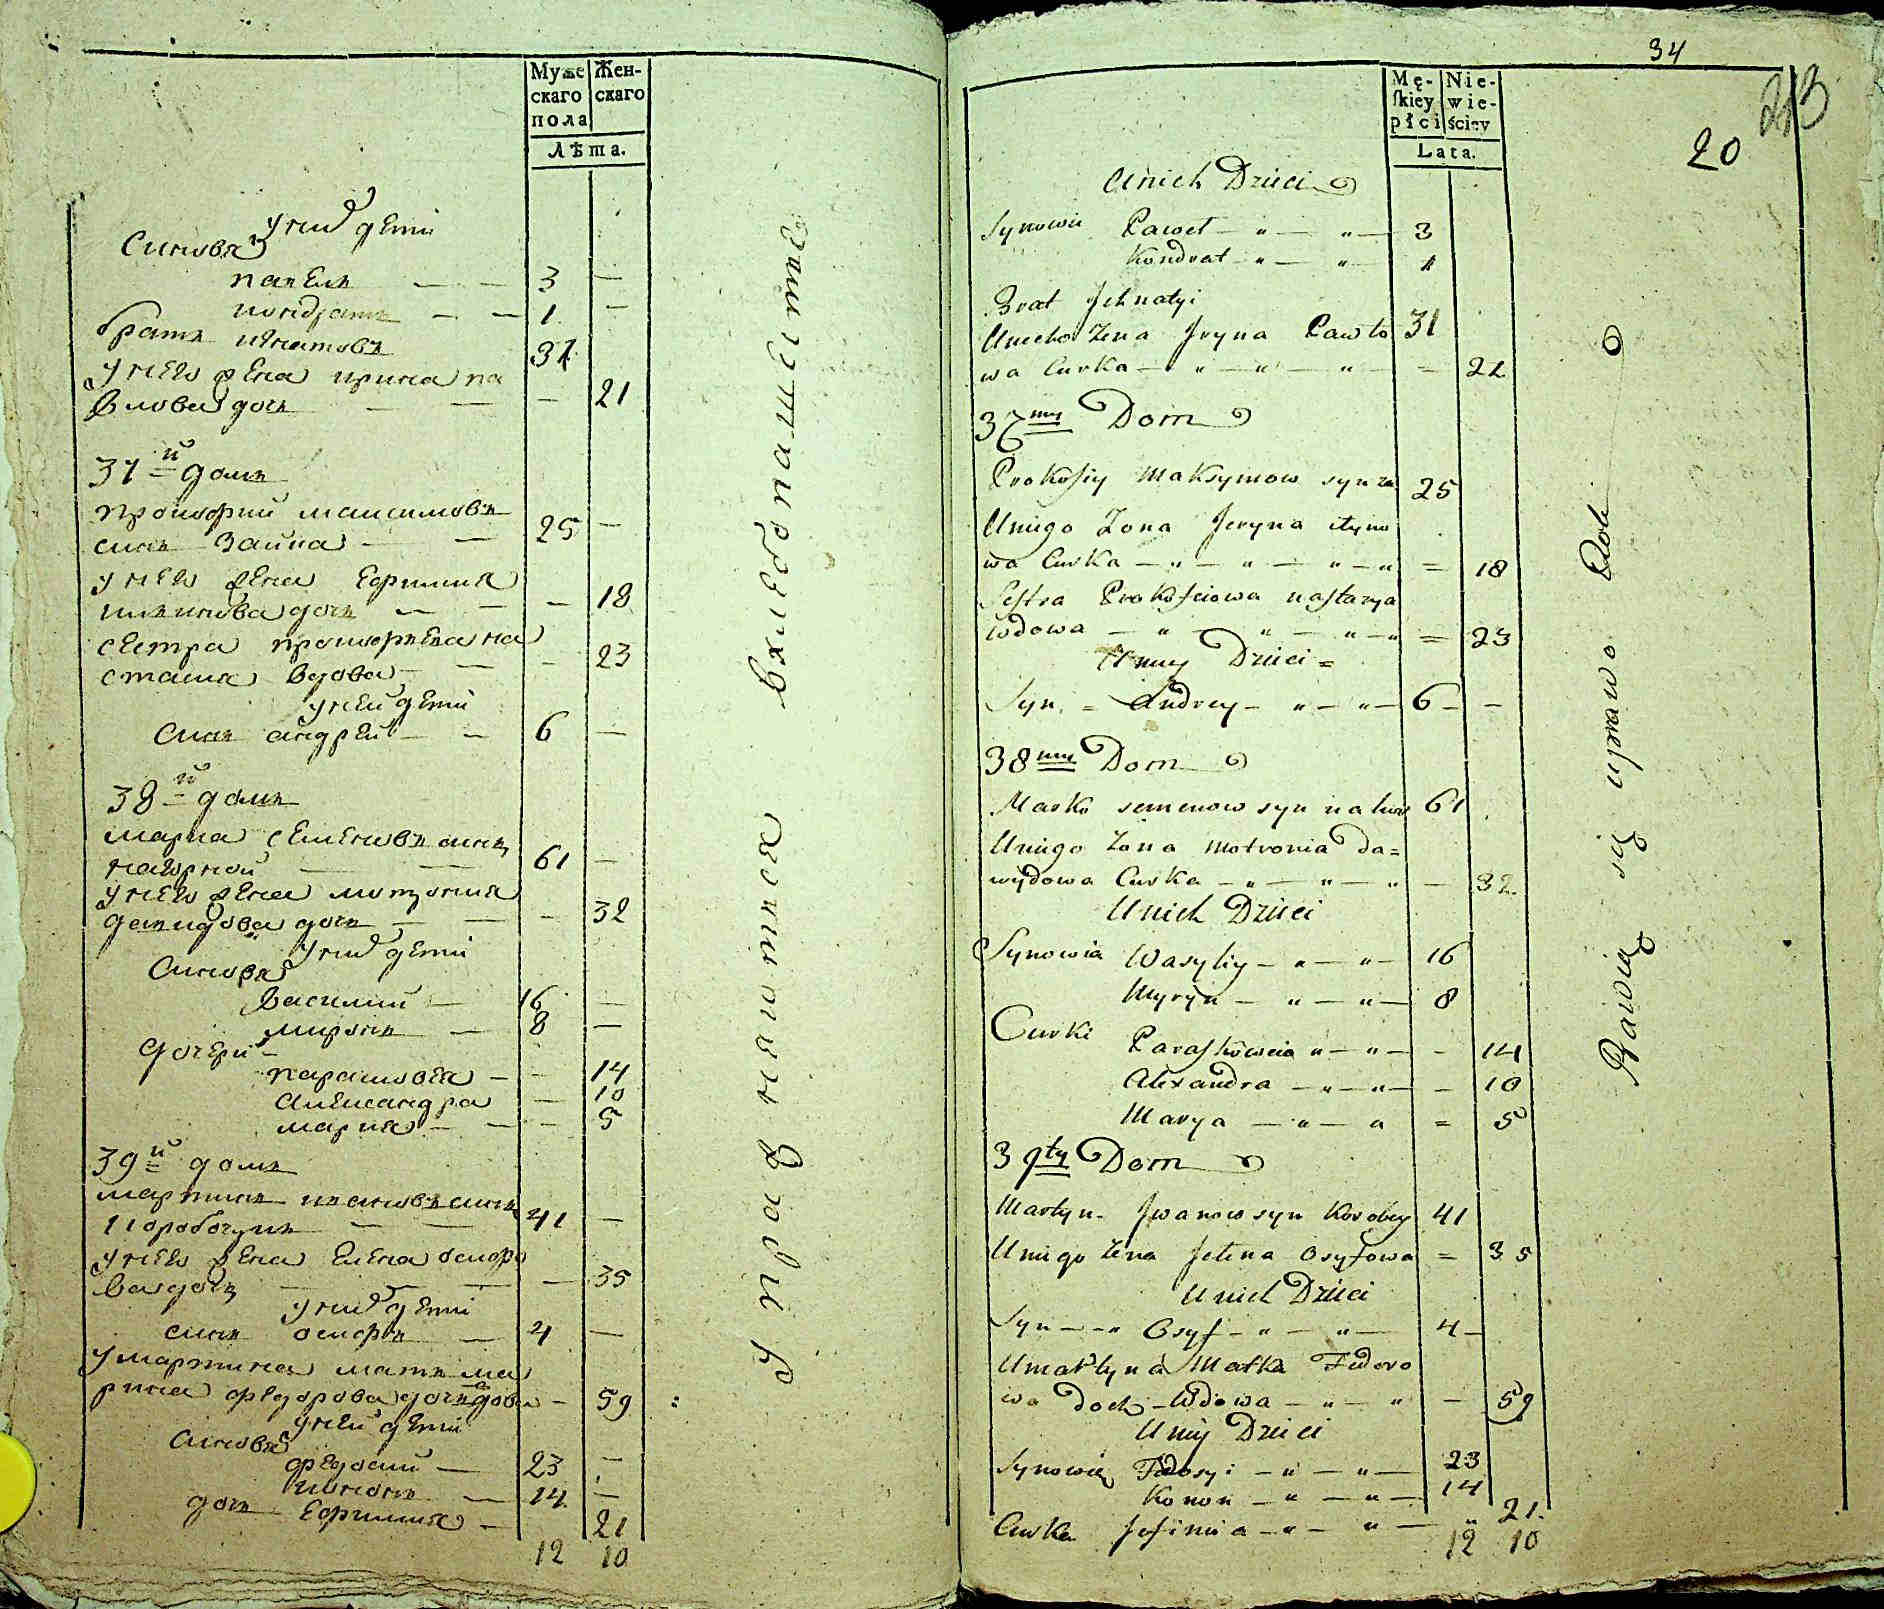 Муже Жен-
скаго скаго
пола
Лѣта.
У них дети
Синовя
павелъ — — 3 —
кондратъ — — 1 —
братъ игнатовъ 31
у него жена ирина па
влова дочъ — — — 21
37й домъ
прокофий максимовъ
синъ Заика — — 25 —
у него жена Ефимия
дочъ — — — 18
сестра прокофиева на
стасия вдова — — — 23
у ней дети
синъ андрей — — 6 —
38й домъ
марко семеновъ синъ
нагорной — — 61 —
у него жена мотрония
давидова дочъ — — — 32
у них дети
Синовя
Василий — 16 —
миронъ — 8 —
дочери
парасковея — — 14
Александра — 10
мария — — — 5
39й домъ
мартинъ ивановъ синъ
коробочкинъ — — 41 —
у него жена Елена осифо
ва дочъ — — — — 35
у них дети
синъ осифъ — 4 —
у мартина мать ма
рина федорова дочъ вдова — 59
у ней дети
синовя
федосий — 23 —
кононъ — 14 —
дочъ Ефимия — 21
12 10
Упражняются въ хлебопашестве
34
213
20
Mę- Nie-
skiey wie-
płci ściey
Lata.
Unich Dzieci
Synowie Paweł — " — " — 3
Kondrat — " — " 1
Brat Jehnatyi
Unieho Żena Jryna Pawło 31
wa Curka — " — " — " — = 21
37my Dom
Prokofiy Maksymow syn za 25
Uniego Żona Jeryna
wa Curka — " — " — " — " = 18
Sestra Prokofiowa nastazya
wdowa — " — " — " — " = 23
Uniey Dzieci =
Syn = Andrey — " — " — 6 — —
38my Dom
Marko semenow syn nahor 61
Uniego Żona Motronia Da=
wydowa Curka — " — " — " — 32
Unich Dzieci
Synowie Wasyliy — " — " — 16
Myryn — " — " — 8
Curki Paraskowia " — " — — 14
Alexandra — " — " — — 10
Marya — " — " = 5
39ty Dom
Martyn Jwanow syn Koroboy 41
Uniego Żena Jelena Osyfowa = 35
Unich Dzieci
Syn — " Osyf — " — " — 4 —
Umartyna Matka Fedoro
wa Doch — Wdowa — " — " — 59
Uniy Dzieci
Synowie Fedosyi — " — " — 23
Konon — " — " — 14
Curka Jefimia — " — " — " 21
12 10
Bawią się uprawo Roli